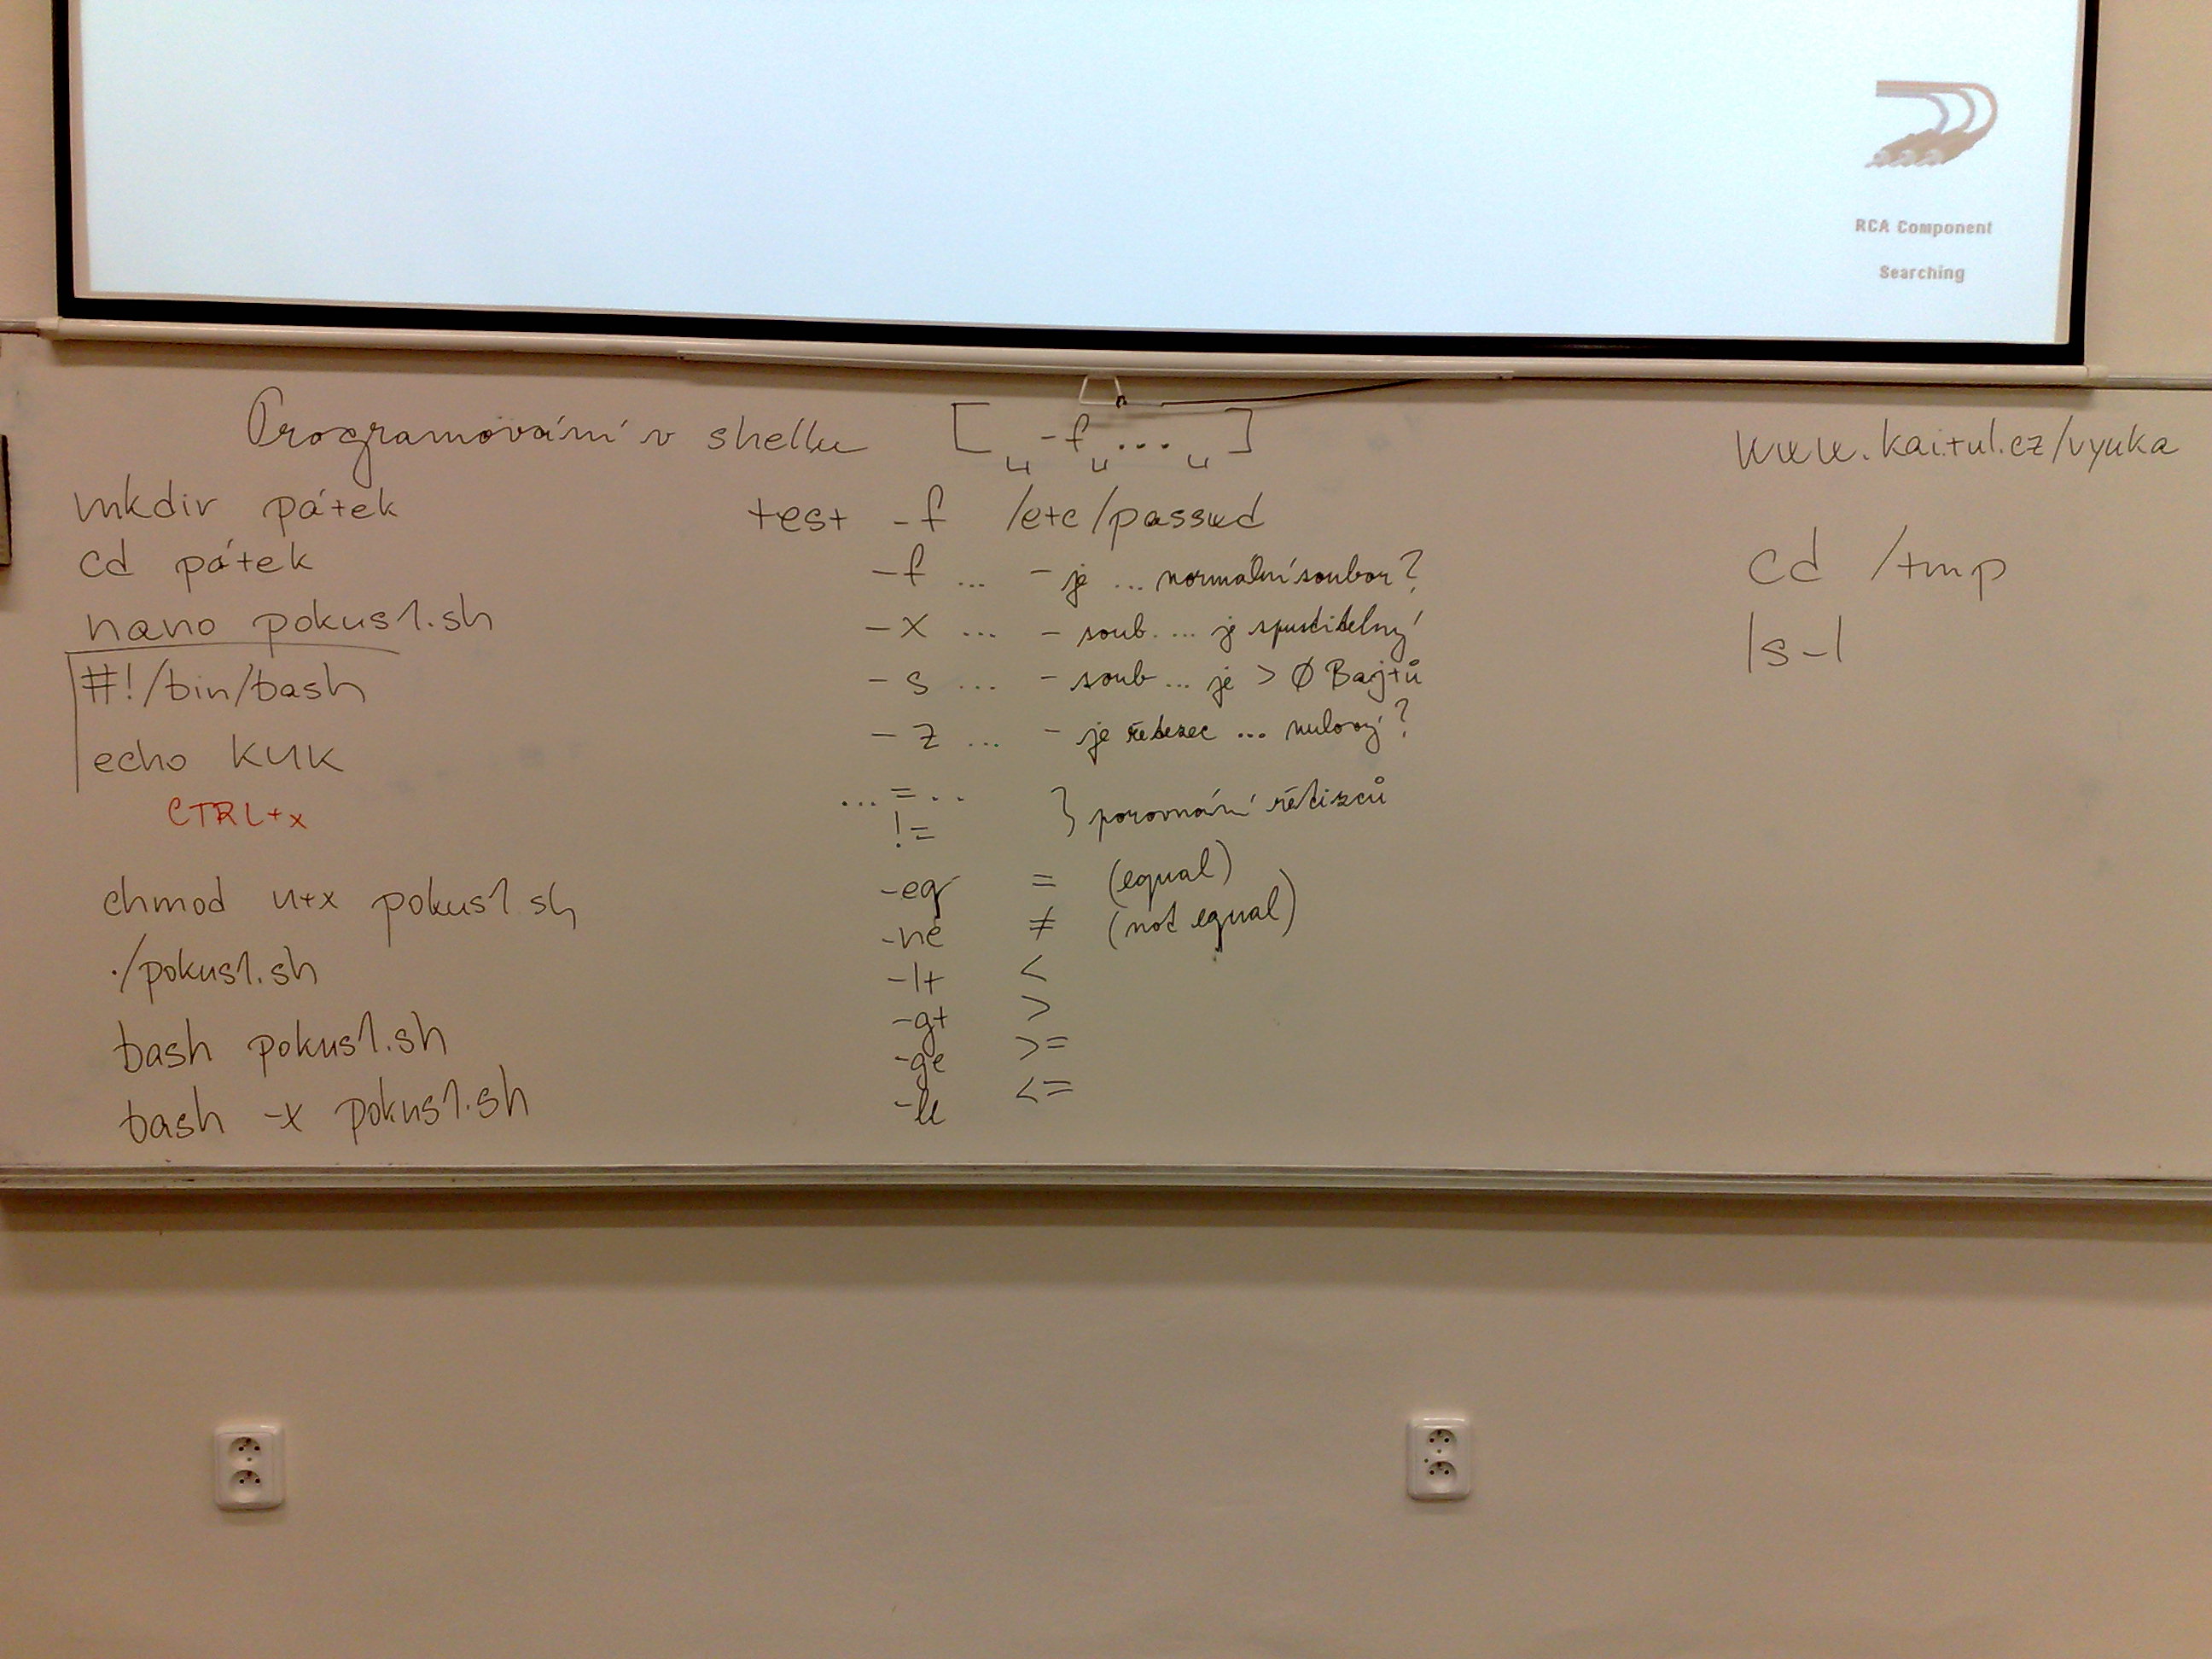 RCA Component
Searching
Programování v shellu
mkdir pátek
cd pátek
nano pokus1.sh
#!/bin/bash
echo KUK
CTRL+x
chmod u+x pokus1.sh
./pokus1.sh
bash pokus1.sh
bash -x pokus1.sh
[ -f ... ]
test -f /etc/passwd
-f ... - je ... normální soubor?
-x ... - soub. ... je spustitelný
-s ... - soub ... je > Ø Bajtů
-z ... - je řetezec ... nulový?
... = ..
!= } porovnání řetizců
-eq = (equal)
-ne ≠ (not equal)
-lt <
-gt >
-ge >=
-le <=
www.kai.tul.cz/vyuka
cd /tmp
ls -l